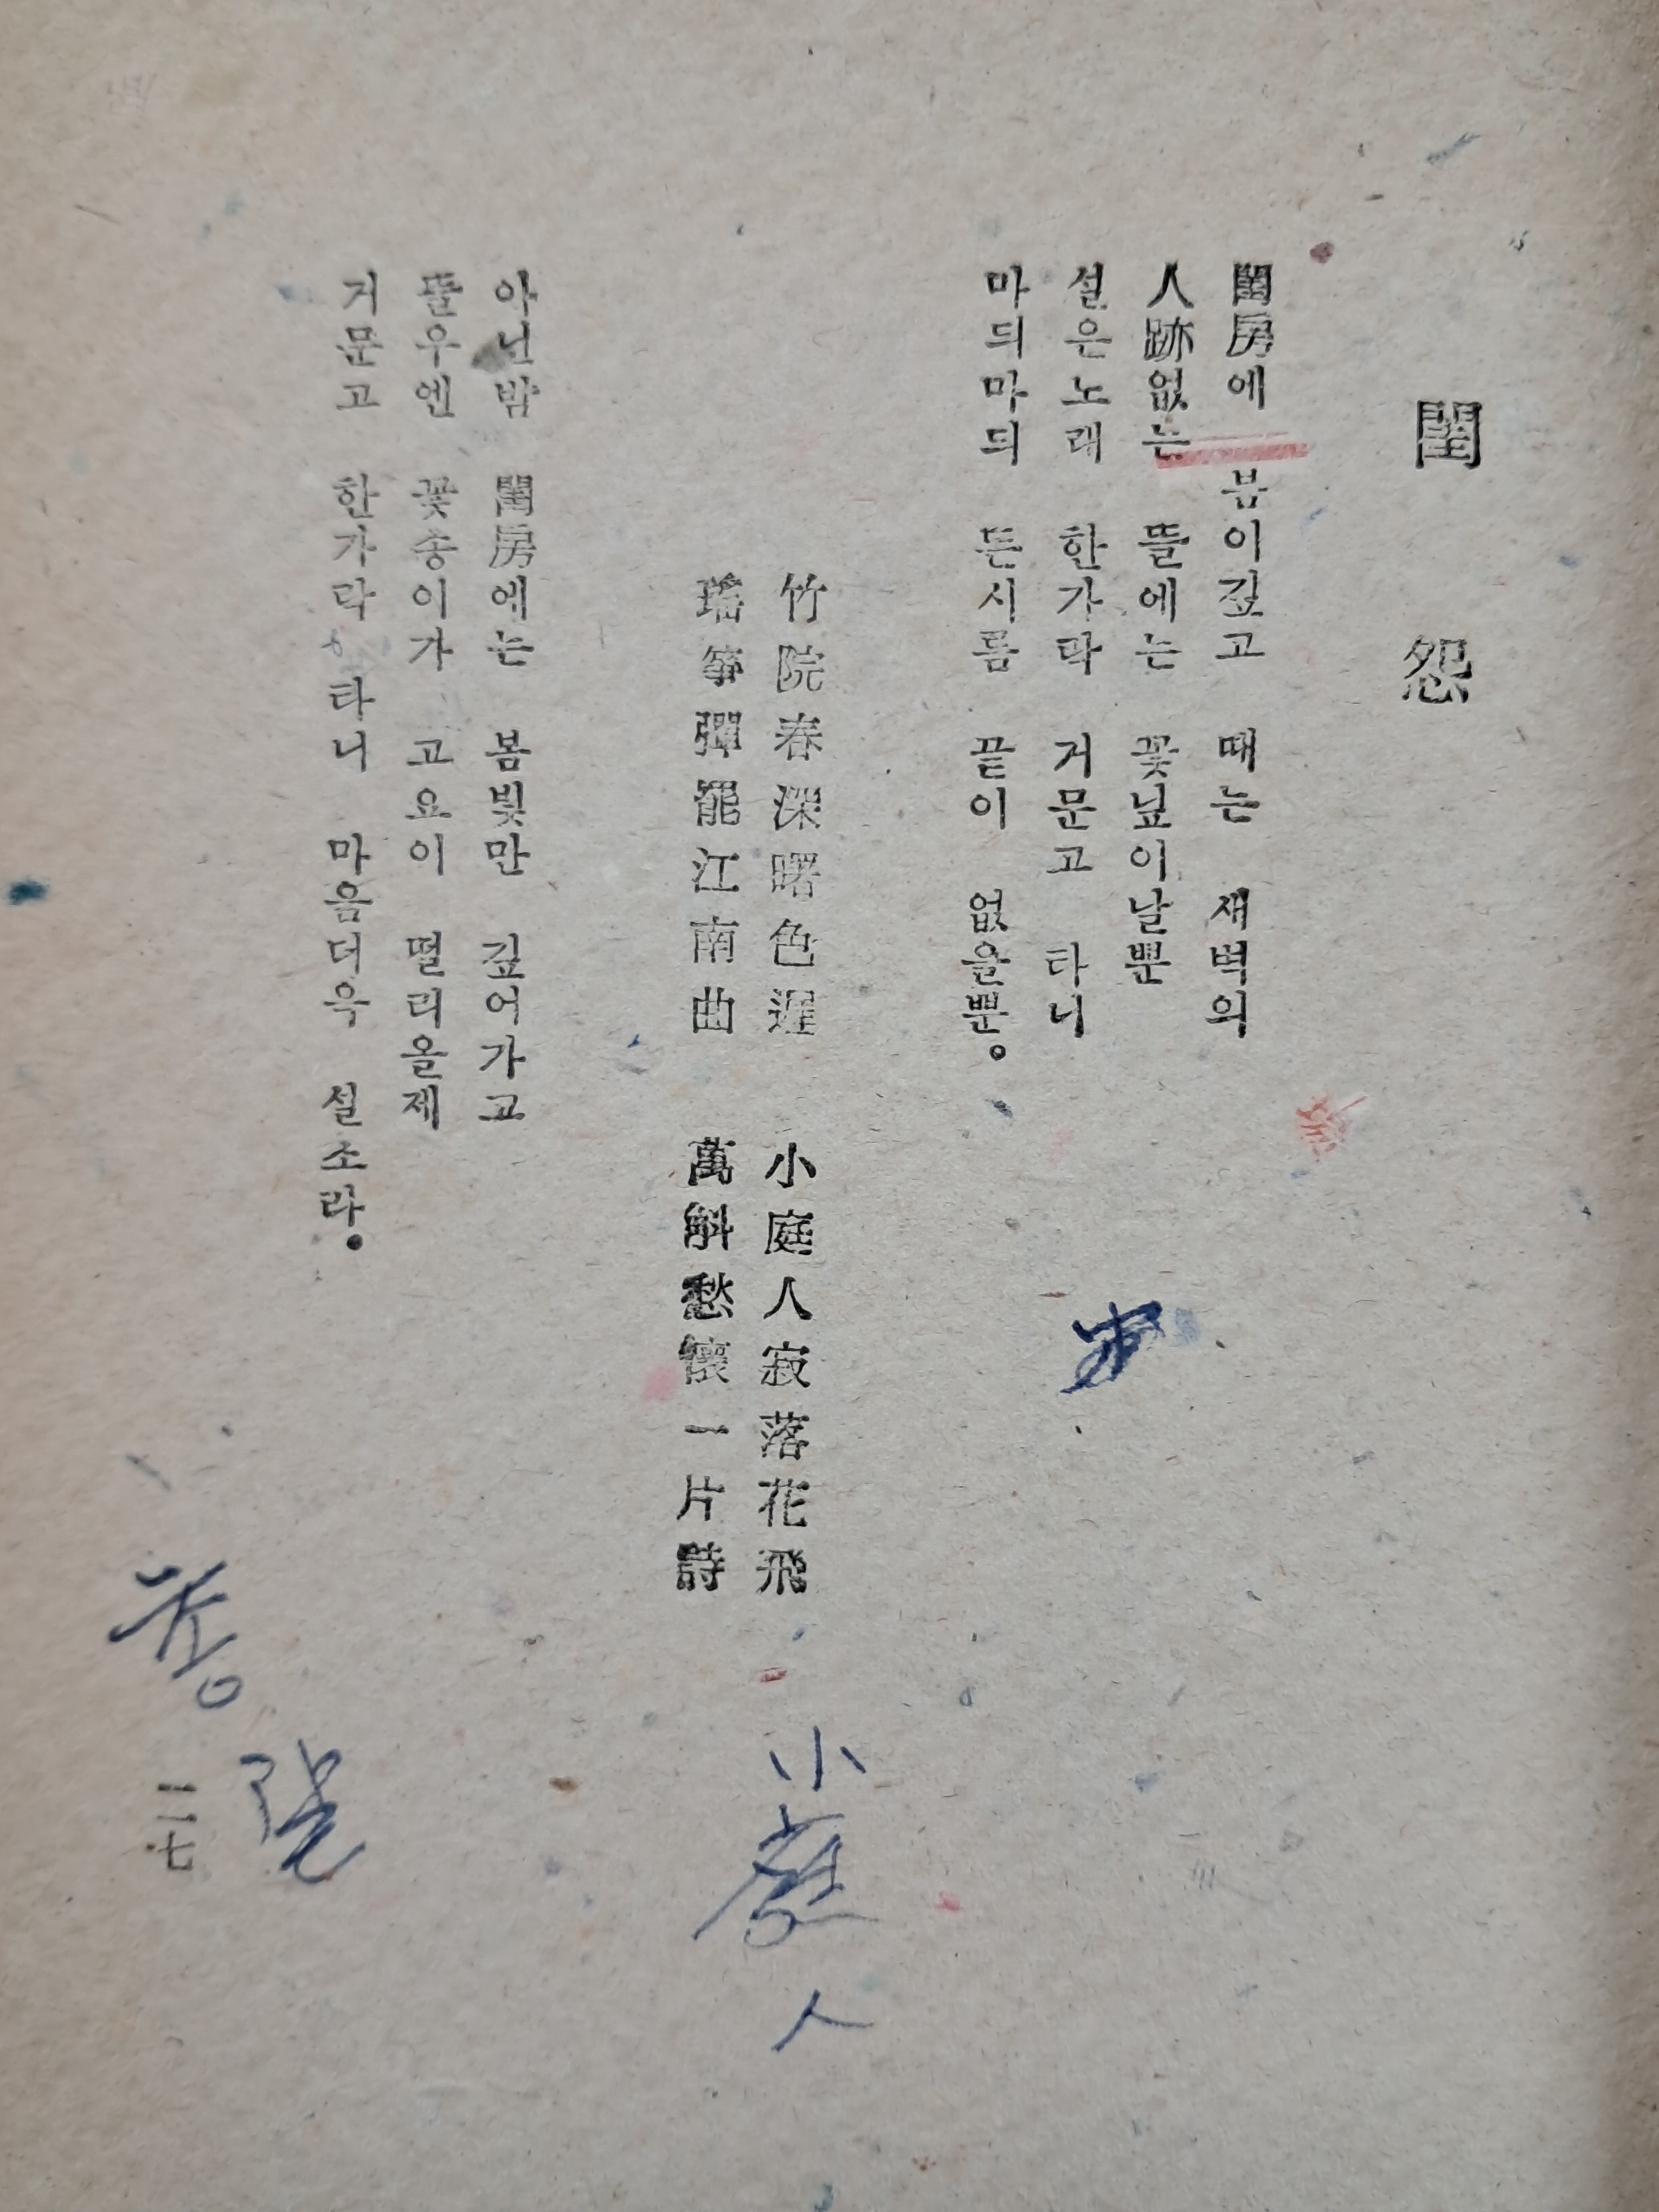 閨怨
閨房에 봄이깊고 때는 새벽의
人跡없는 뜰에는 꽃닢이날뿐
설은노래 한가락 거문고 타니
마듸마듸 든시름 끝이 없을뿐。
竹院春深曙色遲 小庭人寂落花飛
瑤箏彈罷江南曲 萬斛愁懷一片詩
아닌밤 閨房에는 봄빛만 깊어가고
뜰우엔 꽃송이가 고요이 떨리올제
거문고 한가락 타니 마음더욱 설소라。
小
人
二七